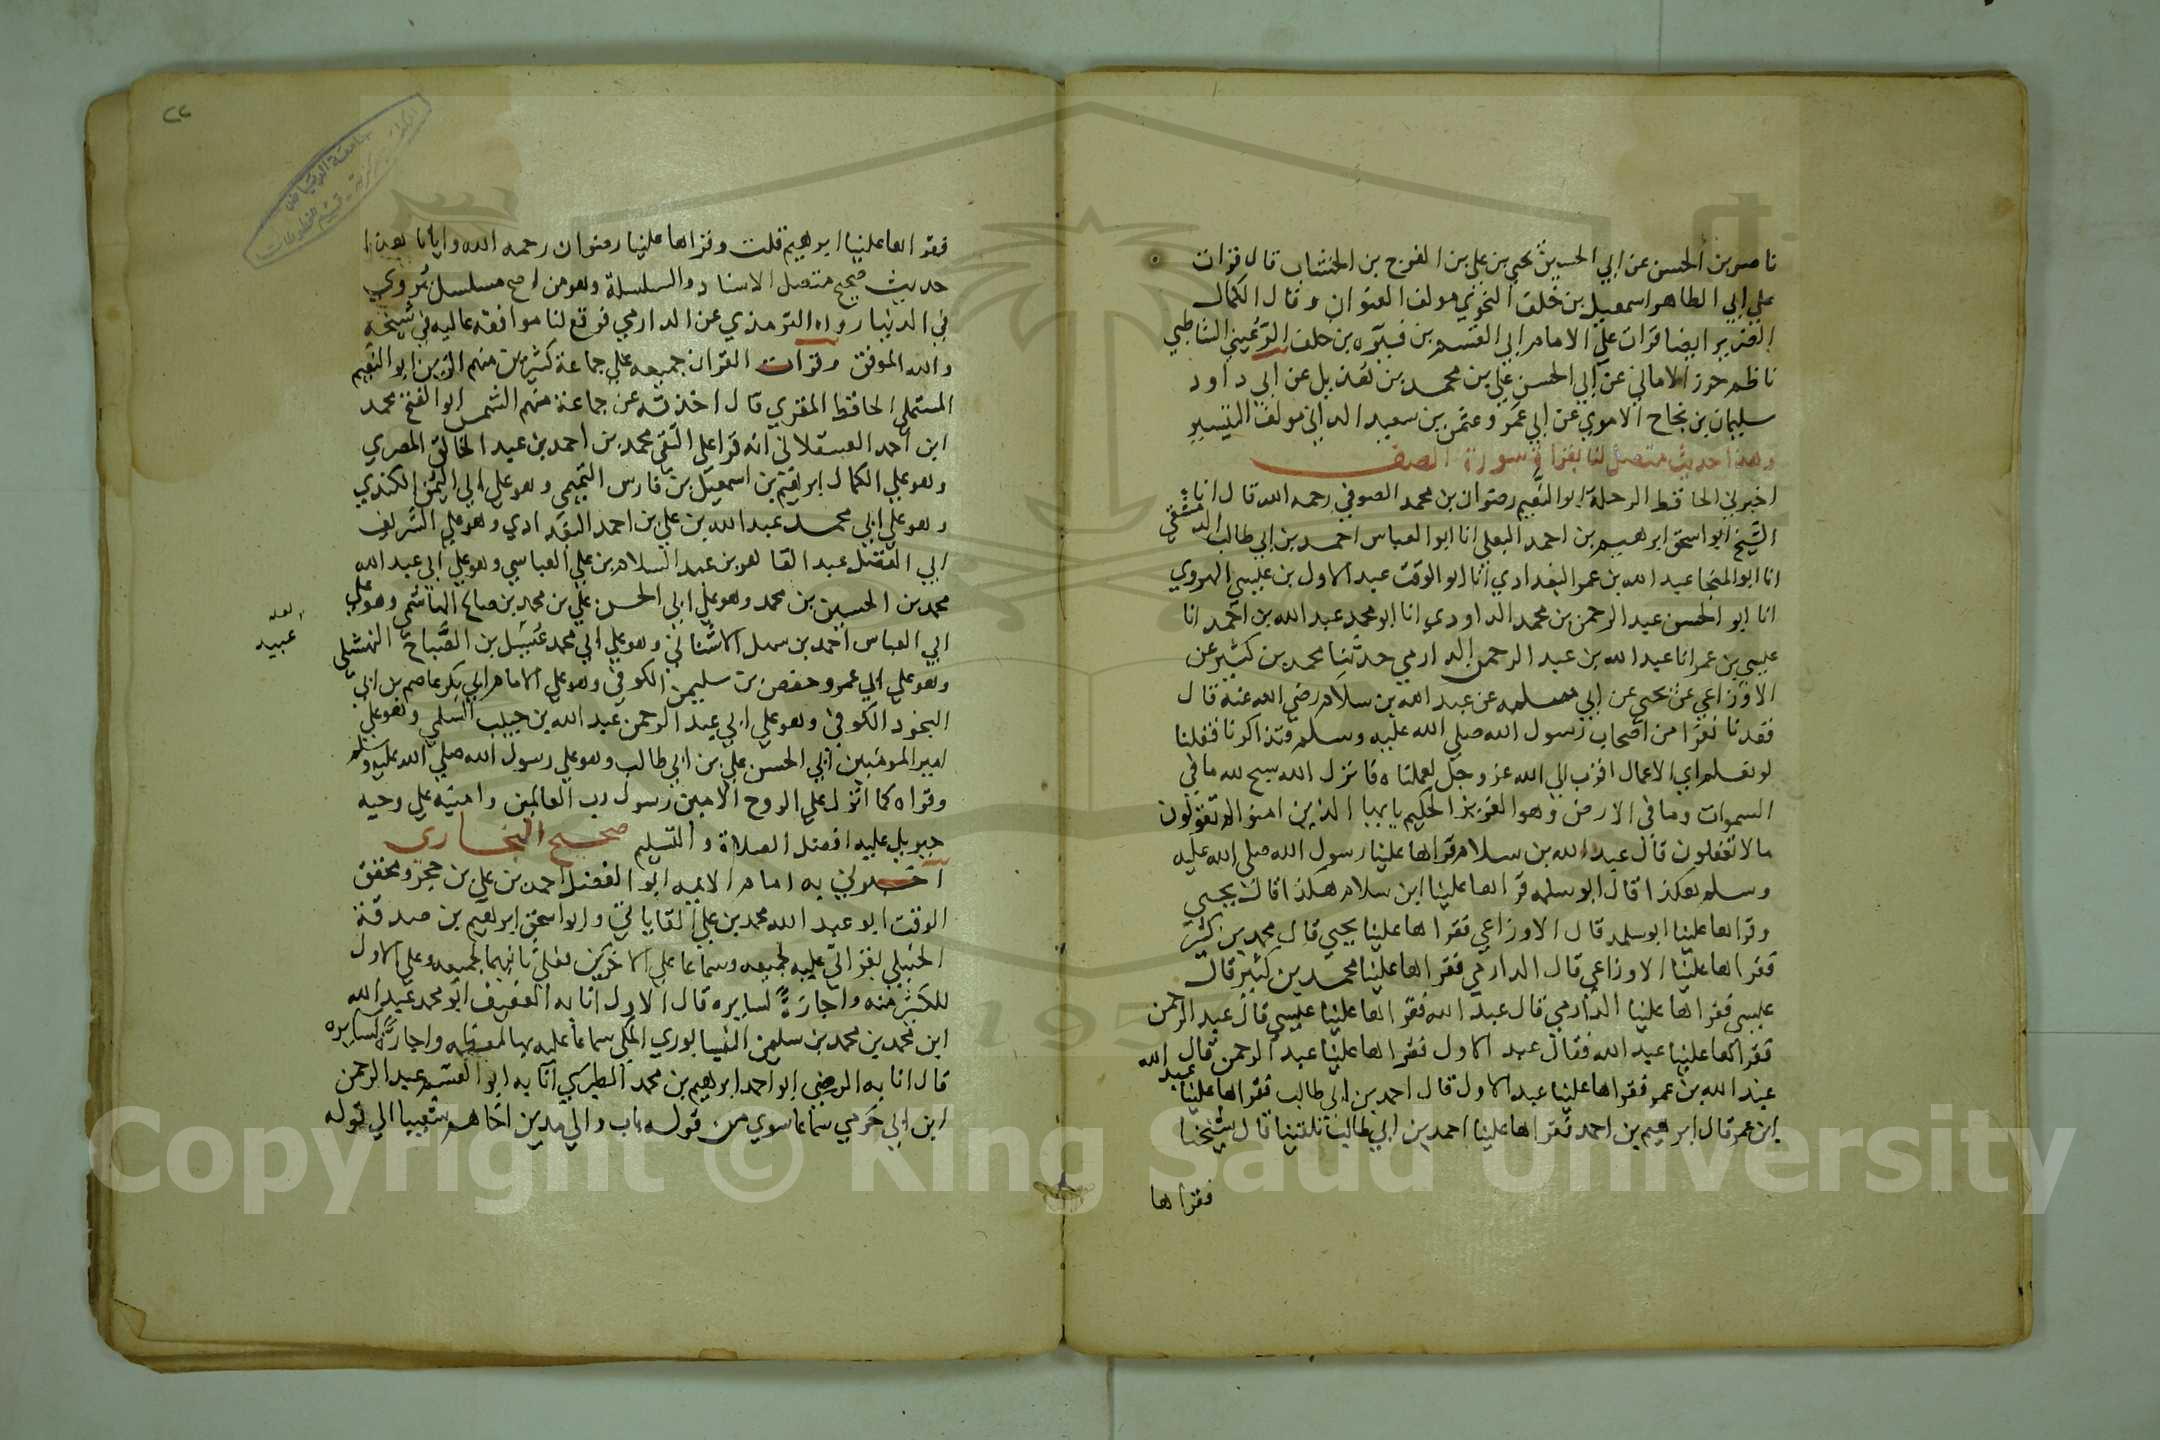 ناصر بن الحسن عن ابي الحسين يحيى بن علي بن الفرج بن الخشاب قال قرات
علي ابي الطاهر اسمعيل بن خلف النحوي مولف العنوان وقال الكمال
الضرير ايضا قرات علي الامام ابي القسم بن فيره بن خلف الرعيني الشاطبي
ناظم حرز الاماني عن ابي الحسن علي بن محمد بن هذيل عن ابي داود
سليمان بن نجاح الاموي عن ابي عمرو عثمن بن سعيد الداني مولف التيسير
وهذا حديث متصل لنا بقراة سورة الصف
اخبرني الحافظ الرحلة ابو النعيم رضوان بن محمد الصوفي رحمه الله قال انا
الشيخ ابو اسحق ابرهيم بن احمد البعلي انا ابو العباس احمد بن ابي طالب الدمشقي
انا ابو المنجا عبد الله بن عمر البغدادي انا ابو الوقت عبد الاول بن عيسي الهروي
انا ابو الحسن عبد الرحمن بن محمد الداودي انا ابو محمد عبد الله بن احمد انا
عيسي بن عمر انا عبد الله بن عبد الرحمن الدارمي حدثنا محمد بن كثير عن
الاوزاعي عن يحيى عن ابي سلمه عن عبد الله بن سلام رضي الله عنه قال
قعدنا نفرا من اصحاب رسول الله صلي الله عليه وسلم فتذاكرنا فقلنا
لو نعلم اي الاعمال اقرب الي الله عز وجل لعملناه فانزل الله سبح لله ما في
السموات وما في الارض وهو العزيز الحكيم يايها الذين امنوا لم تقولون
مالا تفعلون قال عبد الله بن سلام قراها علينا رسول الله صلي الله عليه
وسلم هكذا قال ابو سلمه قراها علينا ابن سلام هكذا قال يحيى
وقراها علينا ابو سلمه قال الاوزاعي فقراها علينا يحيى قال محمد بن كثير
فقراها علينا الاوزاعي قال الدارمي فقراها علينا محمد بن كثير قال
عيسي فقراها علينا الدارمي قال عبد الله فقراها علينا عيسي قال عبد الرحمن
فقراها علينا عبد الله فقال عبد الاول فقراها علينا عبد الرحمن قال عبد الله
عبد الله بن عمر فقراها علينا عبد الاول قال احمد بن ابي طالب فقراها علينا
ابن عمر قال ابرهيم بن احمد فقراها علينا احمد بن ابي طالب قال شيخنا
فقراها
فقراها علينا ابرهيم قلت وقراها علينا رضوان رحمه الله وايانا هذا
حديث صحيح متصل الاسناد والسلسلة وهو من اصح مسلسل يروي
في الدنيا رواه الترمذي عن الدارمي فوقع لنا موافقه عاليه في شيخه
والله الموفق وقرات القران جميعه علي جماعة كثيرين منهم الزين ابو النعيم
المستملي الحافظ المقري قال اخذته عن جماعة منهم الشمس ابو الفتح محمد
ابن احمد العسقلاني انه قرا علي التقي محمد بن احمد بن عبد الخالق المصري
وهو علي الكمال ابرهيم بن اسمعيل بن فارس التميمي وهو علي ابي اليمن الكندي
وهو علي ابي محمد عبد الله بن علي بن احمد البغدادي وهو علي الشريف
ابي الفضل عبد القاهر بن عبد السلام بن علي العباسي وهو علي ابي عبد الله
محمد بن الحسين بن محمد وهو علي ابي الحسن علي بن محمد بن صالح الهاشمي وهو علي
ابي العباس احمد بن سهل الاشناني وهو علي ابي محمد عبيد بن الصباح النهشلي
عبيد
وهو علي ابي عمرو حفص بن سليمن الكوفي وهو علي الامام ابي بكر عاصم بن ابي
النجود الكوفي وهو علي ابي عبد الرحمن عبد الله بن حبيب السلمي وهو علي
امير المومنين ابي الحسن علي بن ابي طالب وهو علي رسول الله صلي الله عليه وسلم
وقراه كما انزل علي الروح الامين رسول رب العالمين وامينه علي وحيه
جبريل عليه افضل الصلاة والتسليم صحيح البخاري
اخبرني به امام الايمه ابو الفضل احمد بن علي بن حجر ومحقق
الوقت ابو عبد الله محمد بن علي القاياتي وابو اسحق ابرهيم بن صدقة
الحنبلي بقراتي عليه لجميعه وسماعا علي الاخرين لجميعه وعلي الاول
للكثير منه واجازة لسايره قال الاول انا به العفيف ابو محمد عبد الله
ابن محمد بن محمد بن سليمن النيسابوري المكي سماعا عليه بها لمعظمه واجازة لسايره
قال انا به الرضي ابو احمد ابرهيم بن محمد الطبري انا به ابو القسم عبد الرحمن
ابن ابي حرمي سماعا سوي من قوله باب والي مدين اخاهم شعيبا الي قوله
جامعة الرياض
قسم المخطوطات
Copyright © King Saud University